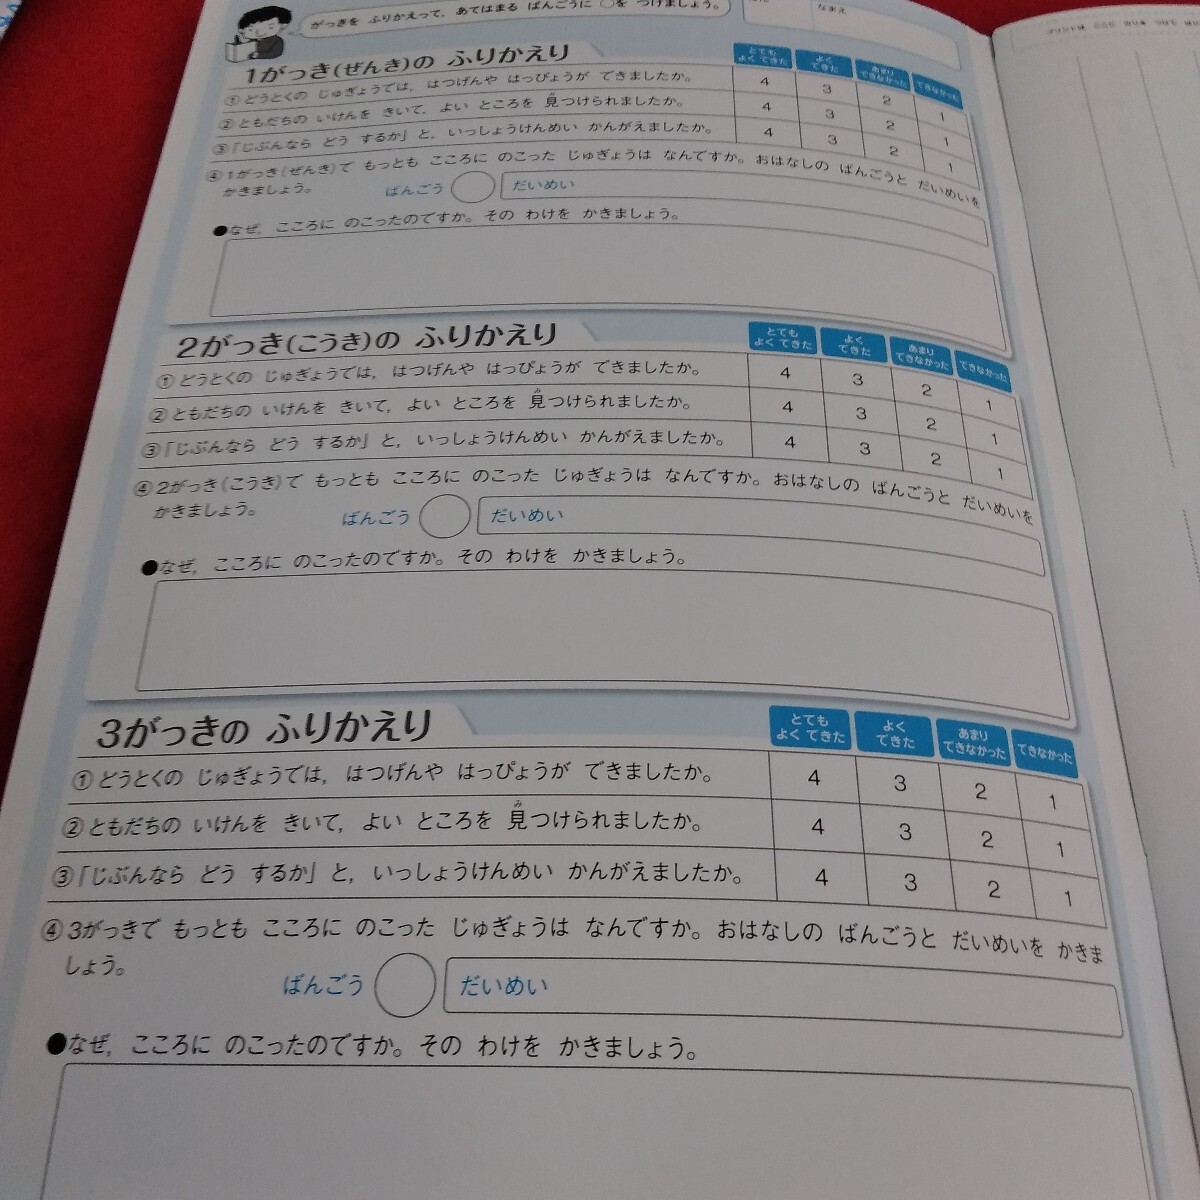 がっきを ふりかえって，あてはまる ばんごうに ○を つけましょう。
なまえ
1がっき(ぜんき)の ふりかえり
とても よく できた
よく できた
あまり できなかった
できなかった
①どうとくの じゅぎょうでは，はつげんや はっぴょうが できましたか。 4 3 2 1
②ともだちの いけんを きいて，よい ところを 見つけられましたか。 4 3 2 1
み
③「じぶんなら どう するか」と，いっしょうけんめい かんがえましたか。 4 3 2 1
④1がっき(ぜんき)で もっとも こころに のこった じゅぎょうは なんですか。おはなしの ばんごうと だいめいを
かきましょう。
ばんごう
だいめい
●なぜ，こころに のこったのですか。その わけを かきましょう。
2がっき(こうき)の ふりかえり
とても よく できた
よく できた
あまり できなかった
できなかった
①どうとくの じゅぎょうでは，はつげんや はっぴょうが できましたか。 4 3 2 1
み
②ともだちの いけんを きいて，よい ところを 見つけられましたか。 4 3 2 1
③「じぶんなら どう するか」と，いっしょうけんめい かんがえましたか。 4 3 2 1
④2がっき(こうき)で もっとも こころに のこった じゅぎょうは なんですか。おはなしの ばんごうと だいめいを
かきましょう。
ばんごう
だいめい
●なぜ，こころに のこったのですか。その わけを かきましょう。
3がっきの ふりかえり
とても よく できた
よく できた
あまり できなかった
できなかった
①どうとくの じゅぎょうでは，はつげんや はっぴょうが できましたか。 4 3 2 1
み
②ともだちの いけんを きいて，よい ところを 見つけられましたか。 4 3 2 1
③「じぶんなら どう するか」と，いっしょうけんめい かんがえましたか。 4 3 2 1
④3がっきで もっとも こころに のこった じゅぎょうは なんですか。おはなしの ばんごうと だいめいを かきま
しょう。
ばんごう
だいめい
●なぜ，こころに のこったのですか。その わけを かきましょう。